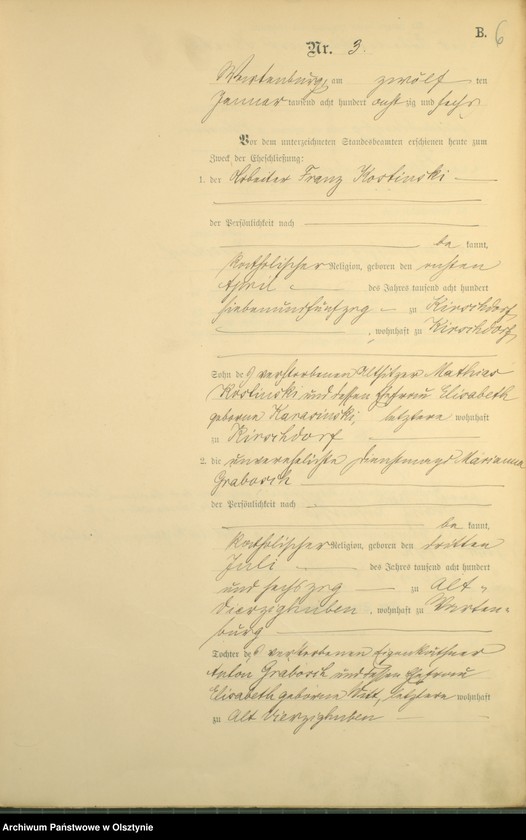 B. 6
Nr. 3.
Wartenburg, am zwölf ten
Januar tausend acht hundert acht zig und sechs
Vor dem unterzeichneten Standesbeamten erschienen heute zum
Zweck der Eheschließung:
1. der Arbeiter Franz Kostinski
der Persönlichkeit nach
be kannt,
katholischer Religion, geboren den ersten
April des Jahres tausend acht hundert
siebenundfünfzig zu Kirschdorf,
, wohnhaft zu Kirschdorf,
Sohn des verstorbenen Altsitzer Mathias
Kostinski und dessen Ehefrau Elisabeth
geborne Karasinski, letztere wohnhaft
zu Kirschdorf
2. die unverehelichte Dienstmagd Marianna
Grabosch
der Persönlichkeit nach
be kannt,
katholischer Religion, geboren den dritten
Juli des Jahres tausend acht hundert
und sechszig zu Alt-
Vierzighuben, wohnhaft zu Warten-
burg
Tochter des verstorbenen Eigenkäthner
Anton Grabosch und dessen Ehefrau
Elisabeth geborne, letztere wohnhaft
zu Alt Vierzighuben
Archiwum Państwowe w Olsztynie